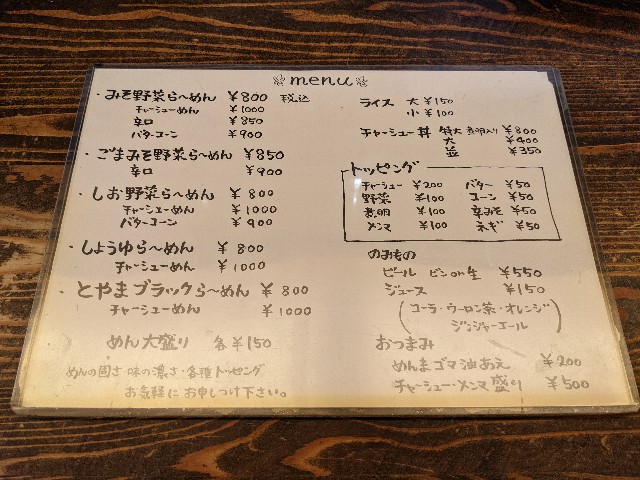 menu
・みそ野菜ら〜めん ¥800 税込
チャーシューめん ¥1000
辛口 ¥850
バターコーン ¥900
・ごまみそ野菜ら〜めん ¥850
辛口 ¥900
・しお野菜ら〜めん ¥800
チャーシューめん ¥1000
バターコーン ¥900
・しょうゆら〜めん ¥800
チャーシューめん ¥1000
・とやまブラックら〜めん ¥800
チャーシューめん ¥1000
めん大盛り 各¥150
めんの固さ 味の濃さ・各種トッピング
お気軽にお申しつけ下さい。
ライス 大 ¥150
小 ¥100
チャーシュー丼 特大 煮明入り ¥800
大 ¥400
並 ¥350
トッピング
チャーシュー ¥200 バター ¥50
野菜 ¥100 コーン ¥50
煮明 ¥100 辛みそ ¥50
メンマ ¥100 ネギ ¥50
のみもの
ビール ビンor生 ¥550
ジュース ¥150
(コーラ・ウーロン茶・オレンジ
ジンジャーエール)
おつまみ
めんまゴマ油あえ ¥200
チャーシュー・メンマ盛り ¥500